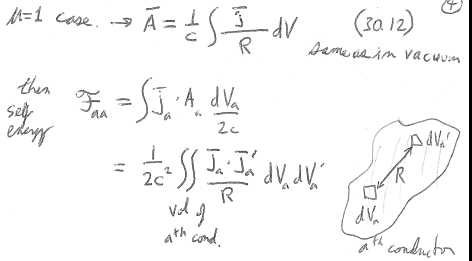 ④
μ=1 case. → Ā = 1/c ∫ j̄/R dV (30.12)
same as in vacuum
then
self
energy
ℱ_aa = ∫ J̄_a · A_a dV_a/2c
= 1/2c² ∬ J̄_a · J̄_a′/R dV_a dV_a′
vol of
a^th cond.
dV_a′
R
dV_a
a^th conductor